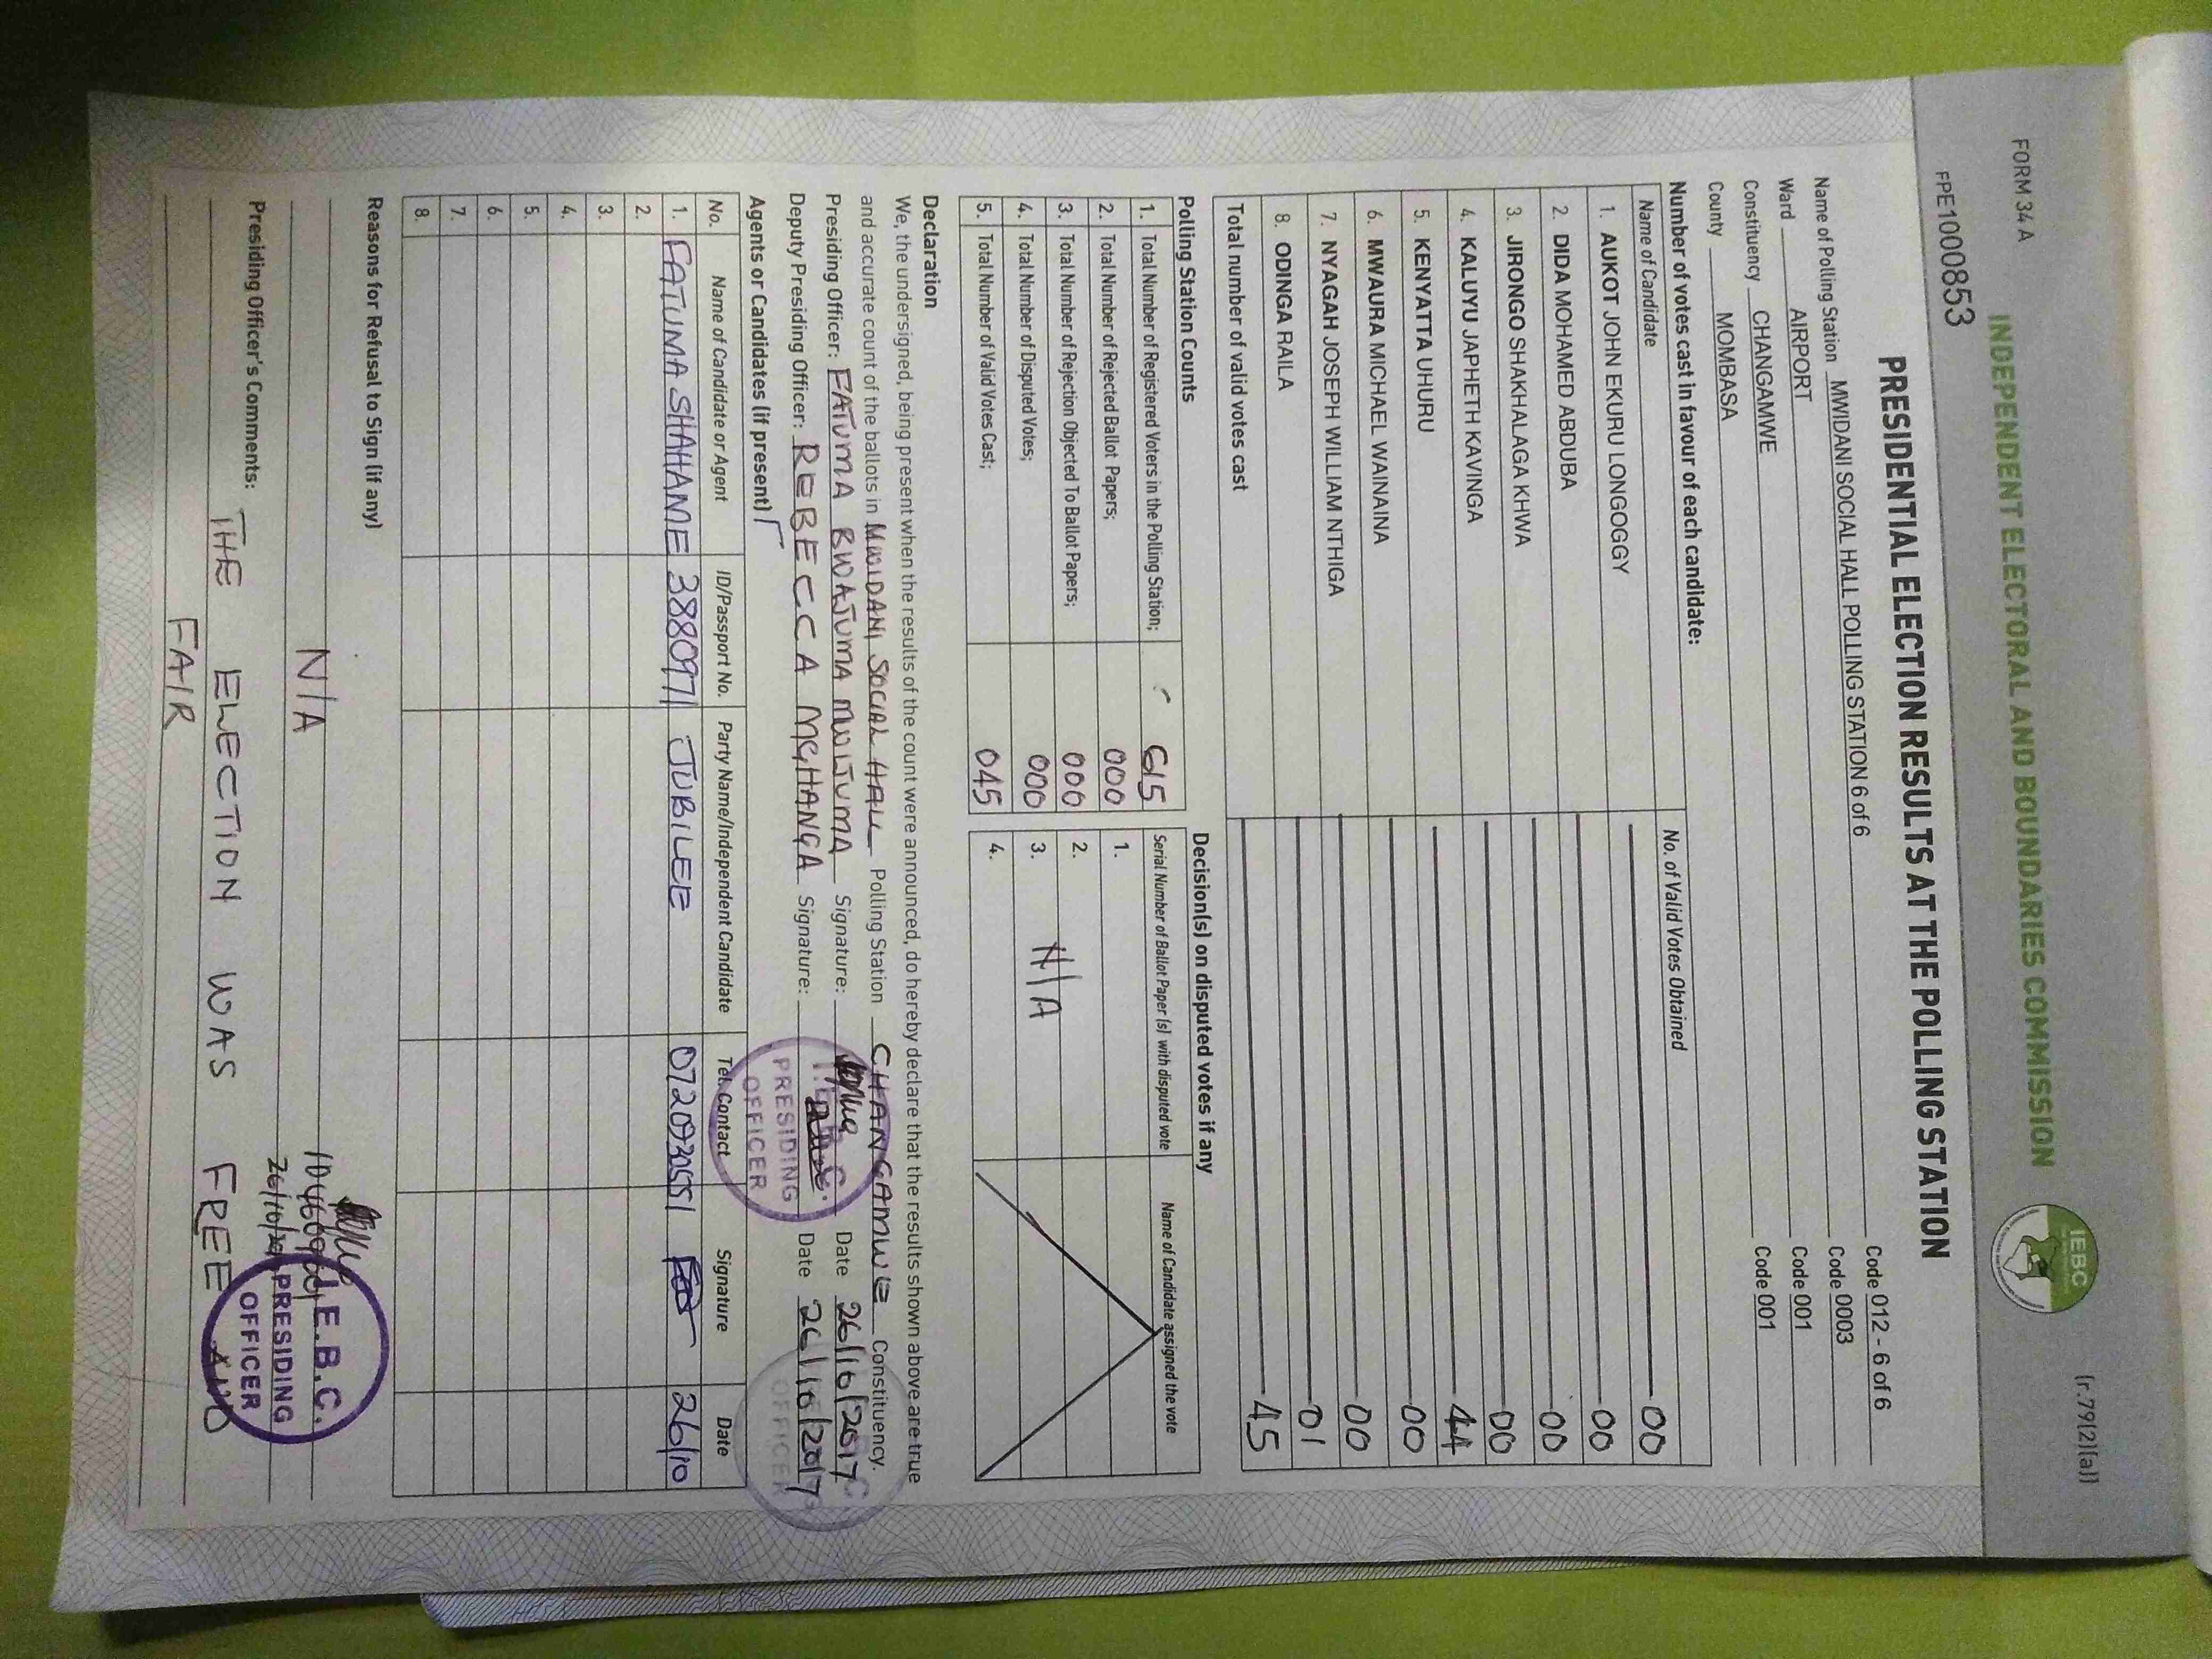 FORM 34 A
[r.79(2)(a)]
INDEPENDENT ELECTORAL AND BOUNDARIES COMMISSION
IEBC
FPE1000853
PRESIDENTIAL ELECTION RESULTS AT THE POLLING STATION
Name of Polling Station MWIDANI SOCIAL HALL POLLING STATION 6 of 6 Code 012 - 6 of 6
Ward AIRPORT Code 0003
Constituency CHANGAMWE Code 001
County MOMBASA Code 001
Number of votes cast in favour of each candidate:
Name of Candidate No. of Valid Votes Obtained
1. AUKOT JOHN EKURU LONGOGGY 00
2. DIDA MOHAMED ABDUBA 00
3. JIRONGO SHAKHALAGA KHWA 00
4. KALUYU JAPHETH KAVINGA 00
5. KENYATTA UHURU 44
6. MWAURA MICHAEL WAINAINA 00
7. NYAGAH JOSEPH WILLIAM NTHIGA 00
8. ODINGA RAILA 01
Total number of valid votes cast 45
Polling Station Counts
1. Total Number of Registered Voters in the Polling Station; 615
2. Total Number of Rejected Ballot Papers; 000
3. Total Number of Rejection Objected To Ballot Papers; 000
4. Total Number of Disputed Votes; 000
5. Total Number of Valid Votes Cast; 045
Decision(s) on disputed votes if any
Serial Number of Ballot Paper (s) with disputed vote Name of Candidate assigned the vote
1.
2.
3. N/A
4.
Declaration
We, the undersigned, being present when the results of the count were announced, do hereby declare that the results shown above are true
and accurate count of the ballots in MWIDANI SOCIAL HALL Polling Station CHANGAMWE Constituency.
Presiding Officer: FATUMA BWAJUMA MWIJUMA Signature: Date 26/10/2017
Deputy Presiding Officer: REBECCA MCHANGA Signature: Date 26/10/2017
PRESIDING
OFFICER
OFFICER
Agents or Candidates (if present)
No. Name of Candidate or Agent ID/Passport No. Party Name/Independent Candidate Tel. Contact Signature Date
1. FATUMA SHAHAME 3880971 JUBILEE 0720930551 26/10
2.
3.
4.
5.
6.
7.
8.
Reasons for Refusal to Sign (if any)
N/A
26/10/
I.E.B.C.
PRESIDING
OFFICER
Presiding Officer's Comments:
THE ELECTION WAS FREE AND
FAIR